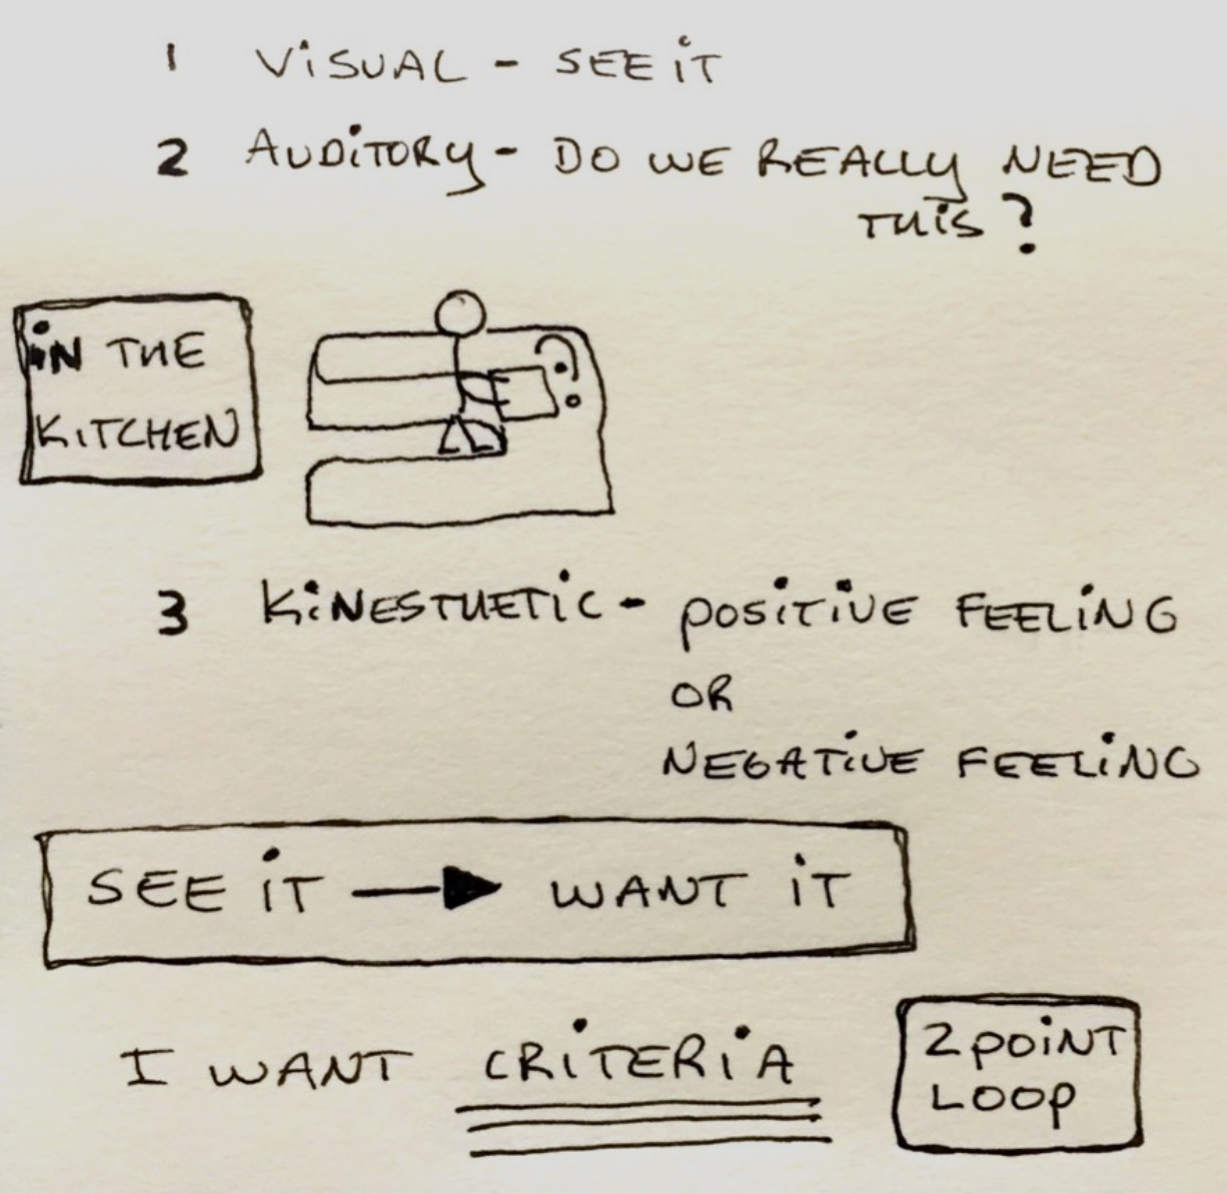 1 VISUAL - SEE IT
2 AUDITORY - DO WE REALLY NEED
THIS?
IN THE
KITCHEN
?
3 KINESTHETIC - POSITIVE FEELING
OR
NEGATIVE FEELING
SEE IT → WANT IT
I WANT CRITERIA
2 POINT
LOOP